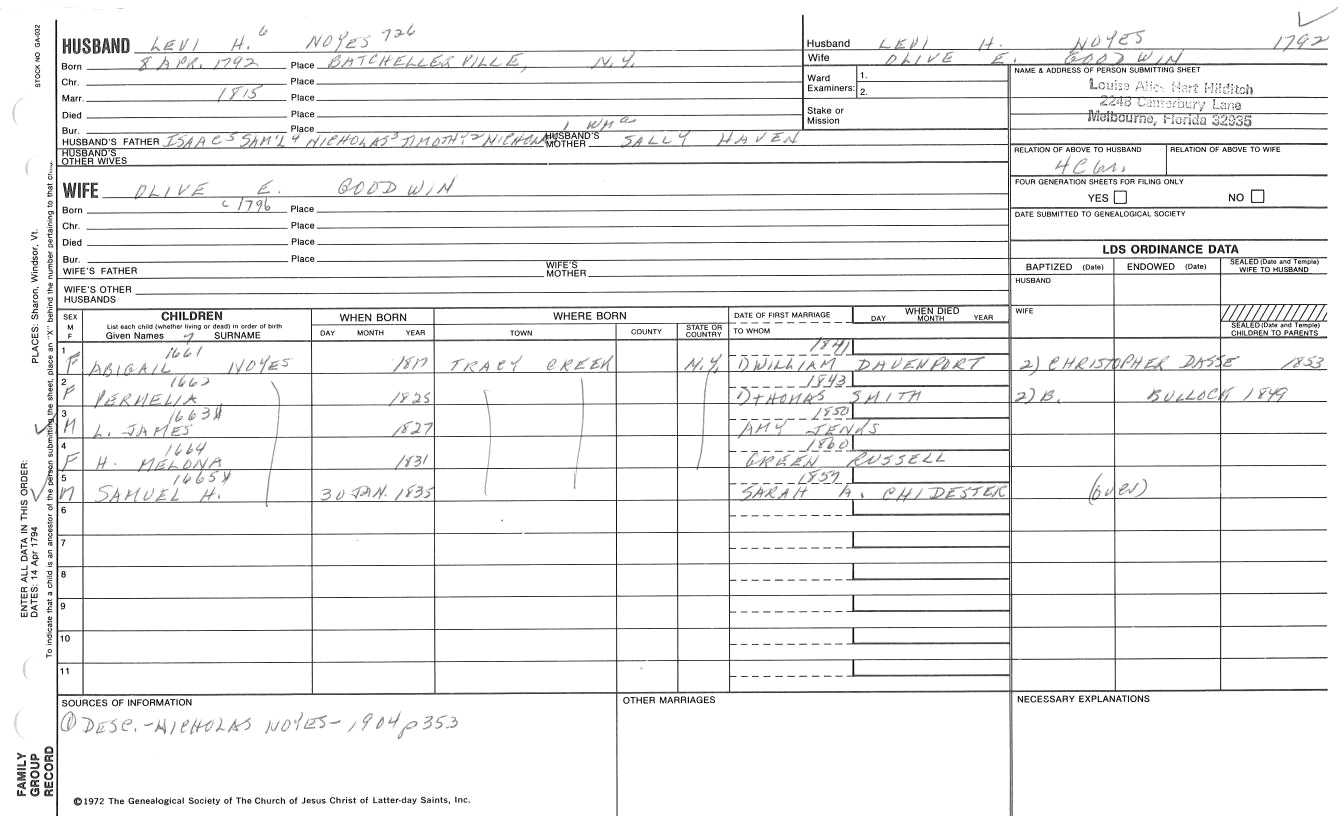 HUSBAND LEVI H. 6 NOYES 726
Born 8 APR. 1792 Place BATCHELLERVILLE, N.Y.
Chr. Place
Marr. 1815 Place
Died Place
Bur. Place
HUSBAND'S FATHER ISAAC 5 SAM'L 4 NICHOLAS 3 TIMOTHY 2 NICHOLAS 1 HUSBAND'S MOTHER SALLY HAVEN
HUSBAND'S OTHER WIVES
WIFE OLIVE E. GOODWIN
Born c 1796 Place
Chr. Place
Died Place
Bur. Place
WIFE'S FATHER WIFE'S MOTHER
WIFE'S OTHER HUSBANDS
Husband LEVI H. NOYES 1792
Wife OLIVE E. GOODWIN
Ward Examiners: 1. 2.
Stake or Mission
NAME & ADDRESS OF PERSON SUBMITTING SHEET
Louise Alice Hart Hilditch
2248 Canterbury Lane
Melbourne, Florida 32935
RELATION OF ABOVE TO HUSBAND RELATION OF ABOVE TO WIFE
FOUR GENERATION SHEETS FOR FILING ONLY
YES NO
DATE SUBMITTED TO GENEALOGICAL SOCIETY
LDS ORDINANCE DATA
BAPTIZED (Date) ENDOWED (Date) SEALED (Date and Temple) WIFE TO HUSBAND
HUSBAND
WIFE
SEALED (Date and Temple) CHILDREN TO PARENTS
SEX M F CHILDREN WHEN BORN WHERE BORN DATE OF FIRST MARRIAGE WHEN DIED
List each child (whether living or dead) in order of birth
Given Names 7 SURNAME DAY MONTH YEAR TOWN COUNTY STATE OR COUNTRY TO WHOM DAY MONTH YEAR
1 1661 1841
F ABIGAIL NOYES 1817 TRACY CREEK N.Y. 1) WILLIAM DAVENPORT 2) CHRISTOPHER DASSE 1853
2 1662 1843
F PERMELIA 1825 1) THOMAS SMITH 2) B. BULLOCK 1849
3 1663 1850
M L. JAMES 1827 AMY JENKS
4 1664 1860
F H. MELONA 1831 GREEN RUSSELL
5 1665 1859
M SAMUEL H. 30 JAN. 1835 SARAH A. CHIDESTER (over)
6
7
8
9
10
11
SOURCES OF INFORMATION OTHER MARRIAGES NECESSARY EXPLANATIONS
① DESC.-NICHOLAS NOYES-1904 p353
©1972 The Genealogical Society of The Church of Jesus Christ of Latter-day Saints, Inc.
STOCK NO GA-032
PLACES: Sharon, Windsor, Vt.
ENTER ALL DATA IN THIS ORDER:
DATES: 14 Apr 1794
To indicate that a child is an ancestor of the person submitting the sheet, place an "X" behind the number pertaining to that
FAMILY GROUP RECORD